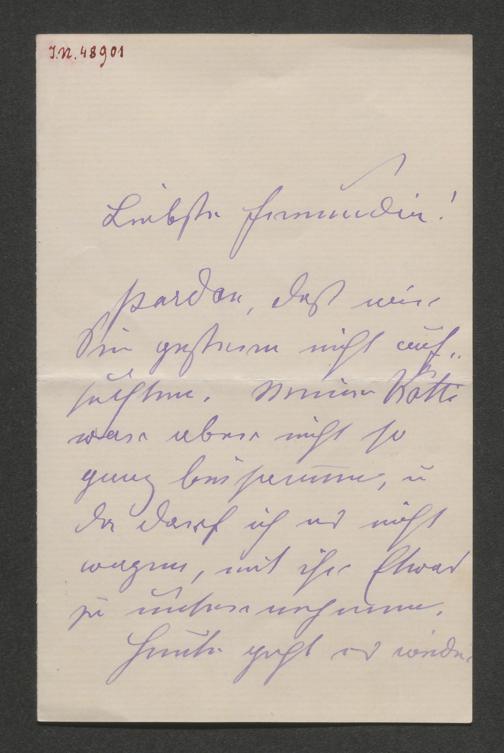 J.N. 48901
Liebste Freundin!
Pardon, daß wir
Sie gestern nicht auf-
suchten. Meine Kathi
war aber nicht so
ganz beisammen, u
da darf ich es nicht
wagen, mit ihr Etwas
zu unternehmen.
Heute geht es wieder